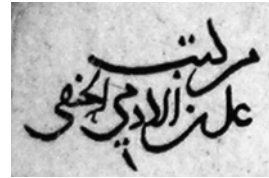 من كتب
علي بن الادمي الحنفي